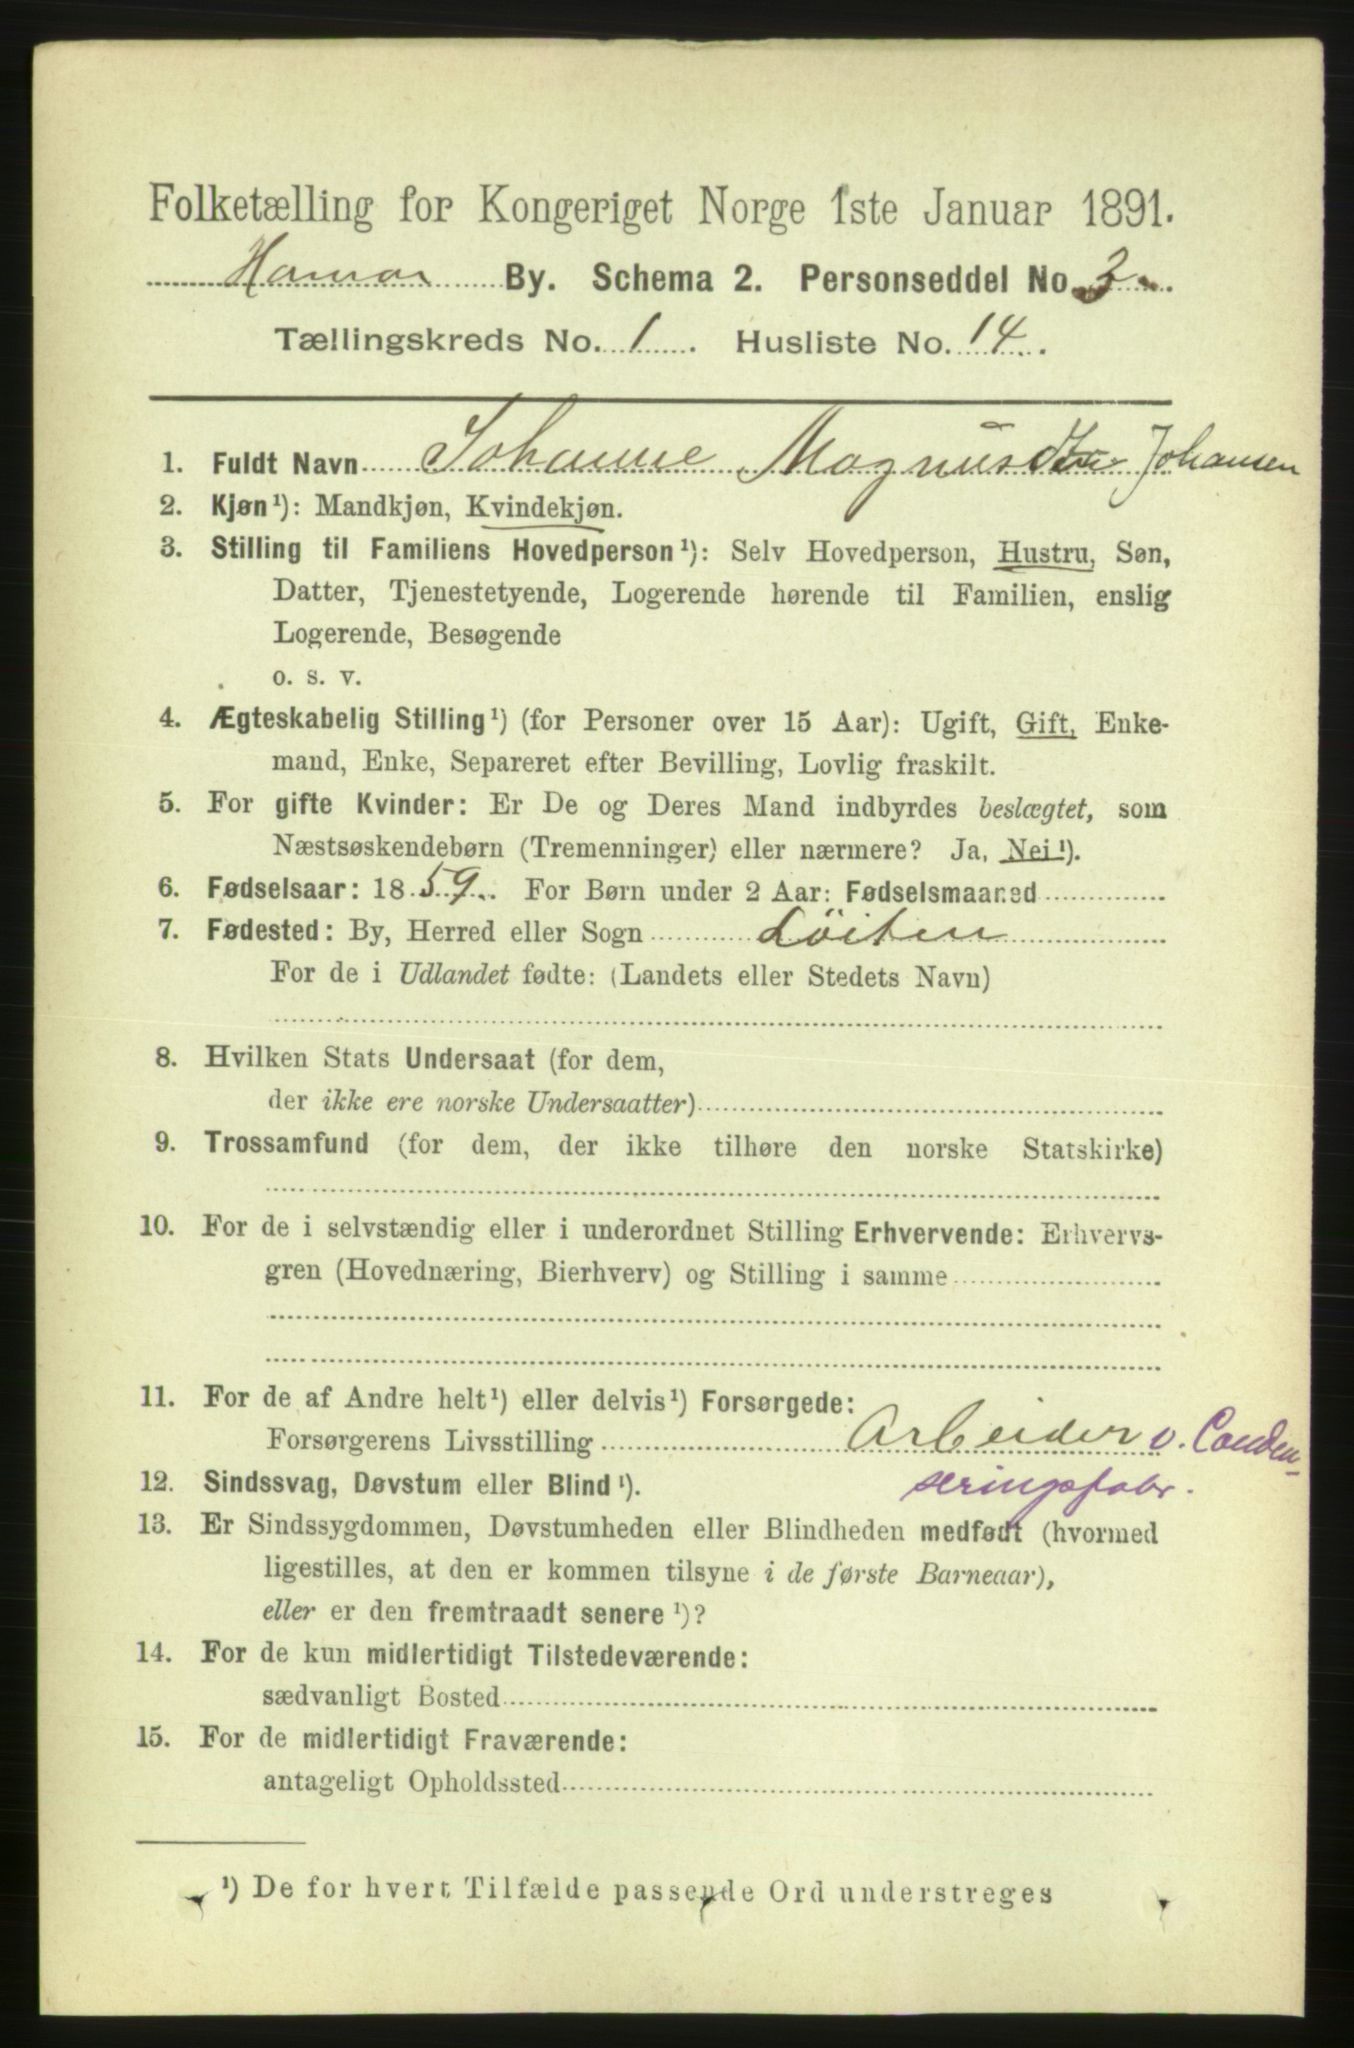 Folketælling for Kongeriget Norge 1ste Januar 1891.
Hamar By. Schema 2. Personseddel No. 3.
Tællingskreds No. 1. Husliste No. 14.
1. Fuldt Navn Johanne Magnus Johansen
2. Kjøn¹): Mandkjøn, Kvindekjøn.
3. Stilling til Familiens Hovedperson¹): Selv Hovedperson, Hustru, Søn,
Datter, Tjenestetyende, Logerende hørende til Familien, enslig
Logerende, Besøgende
o. s. v.
4. Ægteskabelig Stilling¹) (for Personer over 15 Aar): Ugift, Gift, Enke-
mand, Enke, Separeret efter Bevilling, Lovlig fraskilt.
5. For gifte Kvinder: Er De og Deres Mand indbyrdes beslægtet, som
Næstsøskendebørn (Tremenninger) eller nærmere? Ja, Nei¹).
6. Fødselsaar: 1859. For Børn under 2 Aar: Fødselsmaaned
7. Fødested: By, Herred eller Sogn Löiten
For de i Udlandet fødte: (Landets eller Stedets Navn)
8. Hvilken Stats Undersaat (for dem,
der ikke ere norske Undersaatter)
9. Trossamfund (for dem, der ikke tilhøre den norske Statskirke)
10. For de i selvstændig eller i underordnet Stilling Erhvervende: Erhvervs-
gren (Hovednæring, Bierhverv) og Stilling i samme
11. For de af Andre helt¹) eller delvis¹) Forsørgede:
Forsørgerens Livsstilling Arbeider v. Conden-
seringsfabr.
12. Sindssvag, Døvstum eller Blind¹).
13. Er Sindssygdommen, Døvstumheden eller Blindheden medfødt (hvormed
ligestilles, at den er kommen tilsyne i de første Barneaar),
eller er den fremtraadt senere¹)?
14. For de kun midlertidigt Tilstedeværende:
sædvanligt Bosted
15. For de midlertidigt Fraværende:
antageligt Opholdssted
¹) De for hvert Tilfælde passende Ord understreges